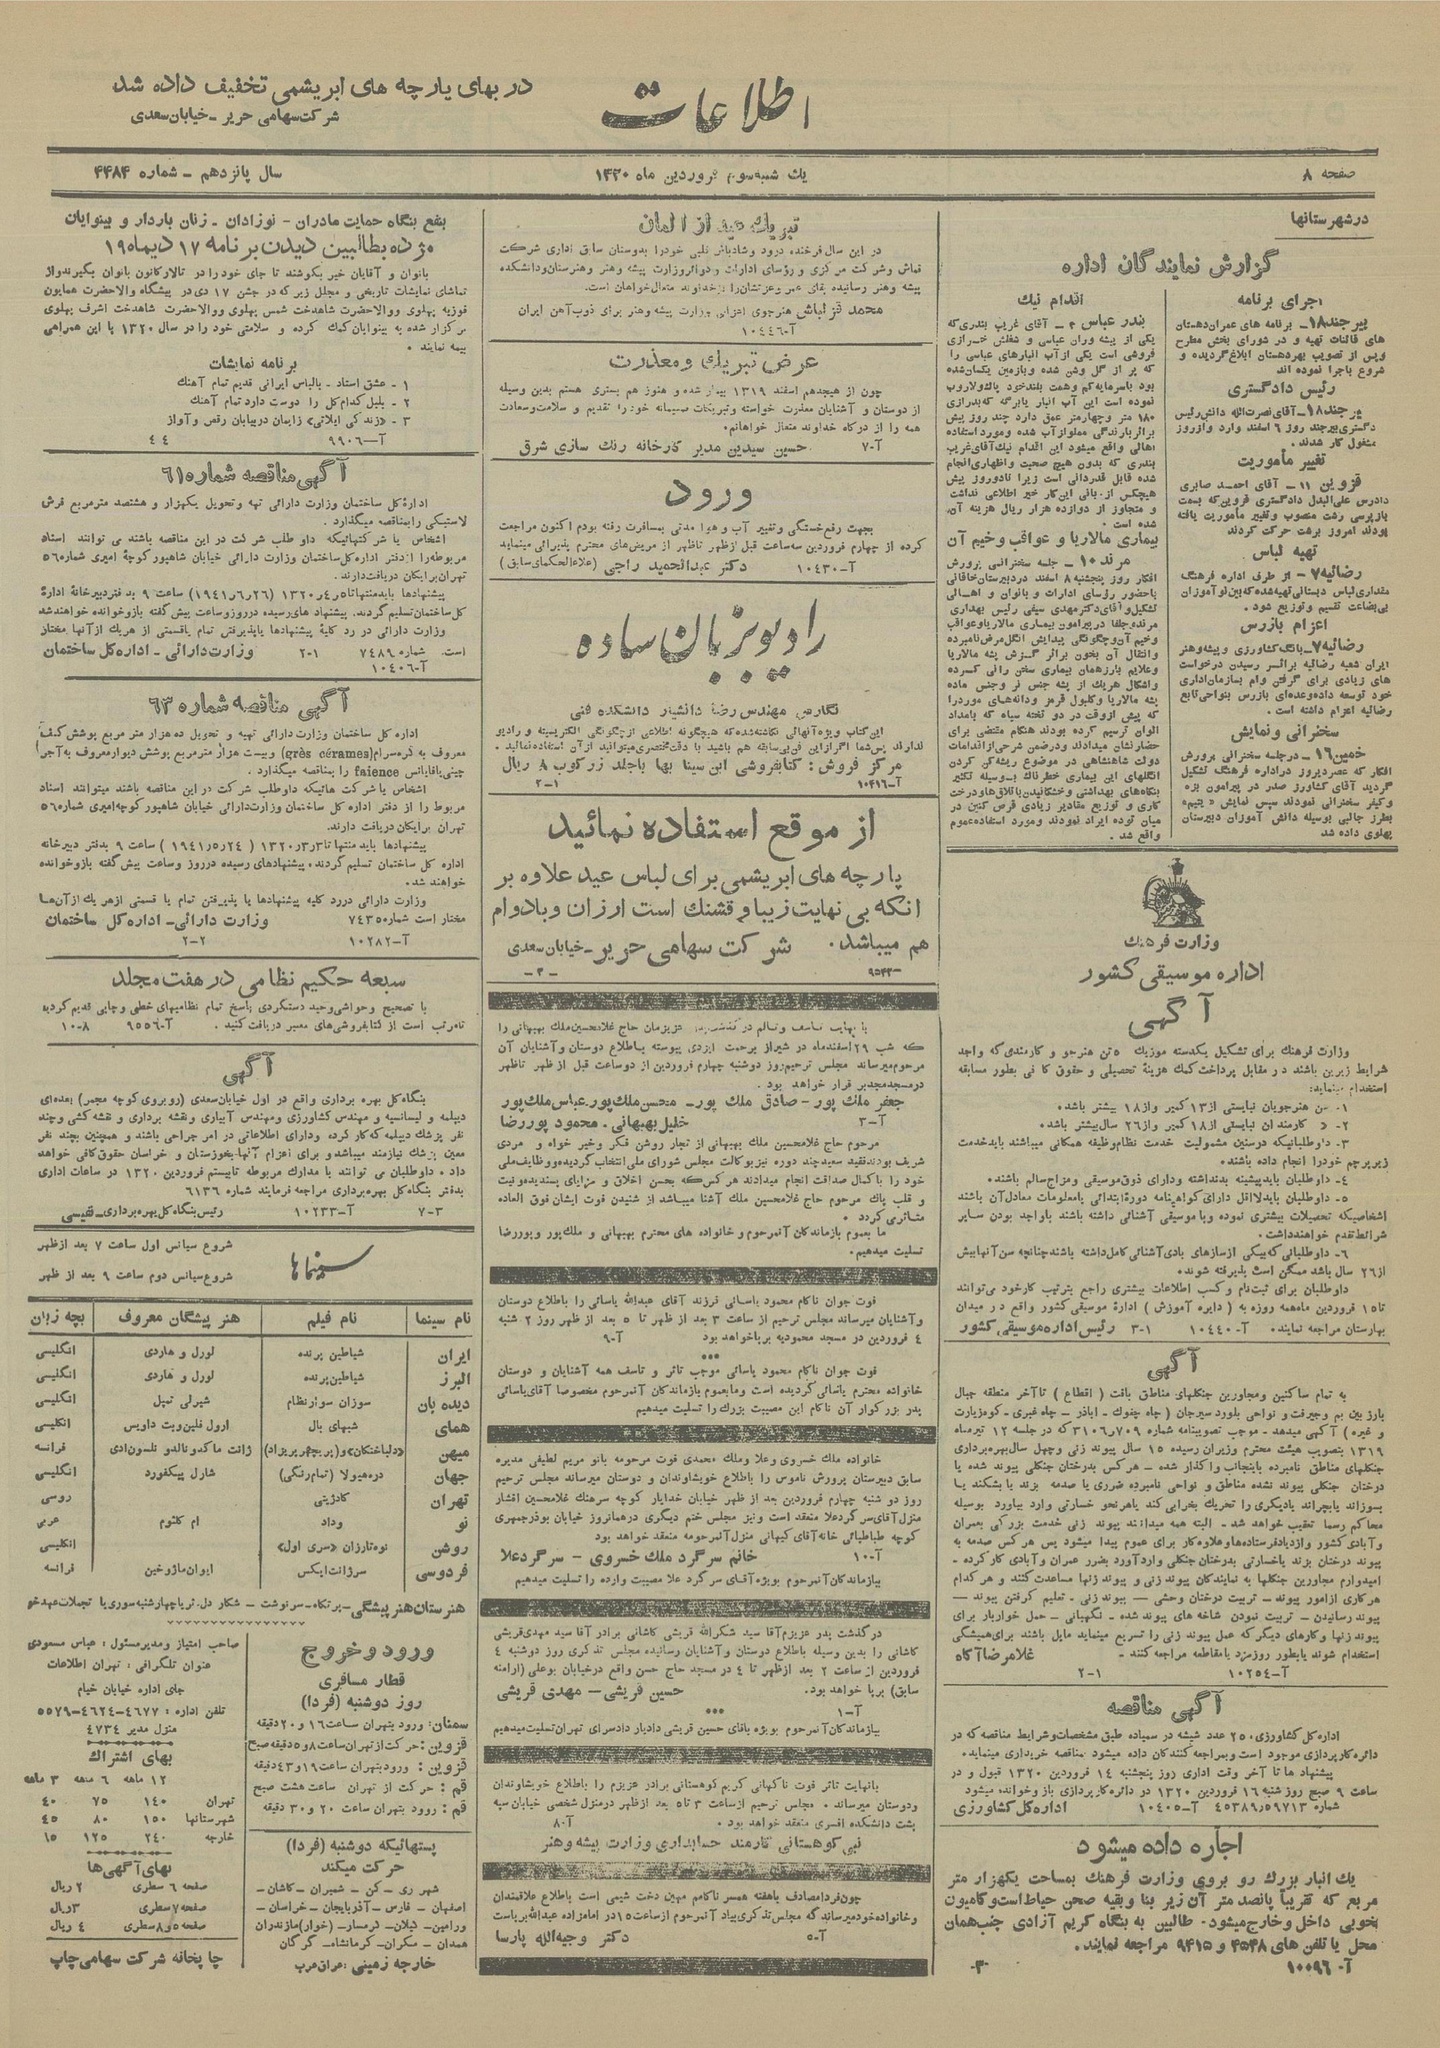 در بهای پارچه های ابریشمی تخفیف داده شد
شرکت سهامی حریر - خیابان سعدی
اطلاعات
صفحه ۸
یك شنبه سوم فروردین ماه ۱۳۲۰
سال پانزدهم - شماره ۴۴۸۴
درشهرستانها
گزارش نمایندگان اداره
اجرای برنامه
بیرجند۱۸- برنامه های عمران دهستان
های قائنات تهیه و در شورای بخش مطرح
وپس از تصویب بهردهستان ابلاغ گردیده و
شروع باجرا نموده اند
رئیس دادگستری
بیرجند۱۸- آقای نصرت‌الله دانش رئیس
دادگستری بیرجند روز ۶ اسفند وارد وازروز
مشغول کار شدند.
تغییر مأموریت
قزوین ۱۱ - آقای احمد صابری
دادرس علی‌البدل دادگستری قزوین که بسمت
بازپرسی رشت منصوب وتغییر مأموریت یافته
بودند امروز برشت حرکت کردند
تهیه لباس
رضائیه۷ - از طرف اداره فرهنگ
مقداری لباس دبستانی تهیه شده که بین نوآموزان
بی‌بضاعت تقسیم و توزیع شود.
اعزام بازرس
رضائیه۷- بانك کشاورزی و پیشه وهنر
ایران شعبه رضائیه براثر رسیدن درخواست
های زیادی برای گرفتن وام بسازمان اداری
خود توسعه داده وعده‌ای بازرس بنواحی تابع
رضائیه اعزام داشته است.
سخنرانی و نمایش
خمین۱۶- درجلسه سخنرانی پرورش
افکار که عصردیروز دراداره فرهنگ تشکیل
گردید آقای کشاورز صدر در پیرامون بزه
وکیفر سخنرانی نمودند سپس نمایش «یتیم»
بطرز جالبی بوسیله دانش آموزان دبیرستان
پهلوی داده شد
اقدام نیك
بندر عباس ۴ - آقای غریب بندری که
یکی از پیشه وران عباسی و شغلش خرازی
فروشی است یکی از آب انبارهای عباسی را
که پر از گل وشن شده وبازمین یکسان شده
بود باسرمایه کم وهمت بلندخود پاك ولاروب
نموده است این آب انبار یابرگه که بدرازی
۱۸۰ متر وچهارمتر عمق دارد چند روز پیش
براثربارندگی مملوازآب شده ومورد استفاده
اهالی واقع میشود این اقدام نیك آقای غریب
بندری که بدون هیچ صحبت واظهاری انجام
شده قابل قدردانی است زیرا تادوروز پیش
هیچکس از بانی این کار خیر اطلاعی نداشت
و متجاوز از دوازده هزار ریال هزینه آن
شده است.
بیماری مالاریا و عواقب وخیم آن
مرند۱۰- جلسه سخنرانی پرورش
افکار روز پنجشنبه ۸ اسفند دردبیرستان خاقانی
باحضور رؤسای ادارات و بانوان و اهالی
تشکیل وآقای دکترمهدی سیفی رئیس بهداری
مرندوجلفا درپیرامون بیماری مالاریاوعواقب
وخیم آن وچگونگی پیدایش انگل مرض نامبرده
وانتقال آن بخون براثر گزش پشه مالاریا
وعلایم بارزهمان بیماری سخن رانی کرده
واشکال هریك از پشه جنس نر وجنس ماده
پشه مالاریا وکلبول قرمز ودانه‌های موردرا
که پیش ازوقت در دو تخته سیاه که بامداد
الوان ترسیم کرده بودند هنگام مقتضی برای
حضارنشان میدادند ودرضمن شرحی ازاقدامات
دولت شاهنشاهی در موضوع ریشه کن کردن
انگلهای این بیماری خطرناك بوسیله تکثیر
بنگاه‌های بهداشتی وخشکانیدن باتلاقهاودرخت
کاری و توزیع مقادیر زیادی قرص کنین در
میان توده ایراد نمودند ومورد استفاده عموم
واقع شد.
وزارت فرهنك
اداره موسیقی کشور
آگهی
وزارت فرهنك برای تشکیل یکدسته موزیك ۵۰ تن هنرجو و کارمندی که واجد
شرایط زیرین باشند در مقابل پرداخت کمك هزینهٔ تحصیلی و حقوق کافی بطور مسابقه
استخدام مینماید:
۱- سن هنرجویان نبایستی از۱۳ کمتر واز۱۸ بیشتر باشد.
۲- « کارمندان نبایستی از۱۸ کمتر واز۲۶ سال بیشتر باشد.
۳- داوطلبانیکه درسنین مشمولیت خدمت نظام وظیفه همگانی میباشند بایدخدمت
زیرپرچم خودرا انجام داده باشند.
۴- داوطلبان بایدپیشینه بدنداشته ودارای ذوق موسیقی ومزاج سالم باشند.
۵- داوطلبان بایدلااقل دارای گواهینامه دورهٔ ابتدائی بامعلومات معادل آن باشند
اشخاصیکه تحصیلات بیشتری نموده وباموسیقی آشنائی داشته باشند باواجد بودن سایر
شرائط تقدم خواهندداشت.
۶- داوطلبانی که بیکی ازسازهای بادی آشنائی کامل داشته باشندچنانچه سن آنهابیش
از۲۶ سال باشد ممکن است پذیرفته شوند.
داوطلبان برای ثبت‌نام و کسب اطلاعات بیشتری راجع بترتیب کارخود می‌توانند
تا۱۵ فروردین ماه‌همه روزه به (دایره آموزش) ادارهٔ موسیقی کشور واقع در میدان
بهارستان مراجعه نمایند. آ-۱۰۴۴۰ ۳-۱ رئیس اداره موسیقی کشور
آگهی
به تمام ساکنین ومجاورین جنگلهای مناطق بافت (اقطاع) تاآخر منطقه جبال
بارز بین بم وجیرفت و نواحی بلورد سیرجان (چاه چغوك - اباذر - چاه غیری - کومزیارت
و غیره) آگهی میدهد - موجب تصویبنامه شماره ۳۱۰۶/۷۰۹ که در جلسه ۱۲ تیرماه
۱۳۱۹ بتصویب هیئت محترم وزیران رسیده ۱۵ سال پیوند زنی وچهل سال بهره‌برداری
جنگلهای مناطق نامبرده باینجانب واگذار شده - هرکس بدرختان جنگلی پیوند شده یا
درختان جنگلی پیوند نشده مناطق و نواحی نامبرده ضرری یا صدمه بزند یا بشکند یا
بسوزاند یابچراند یادیگری را تحریك بخرابی کند یاهرنحو خسارتی وارد بیاورد بوسیله
محاکم رسما تعقیب خواهد شد - البته همه میدانند پیوند زنی خدمت بزرگی بعمران
وآبادی کشور وازدیادفرستاده‌هاوعلاوه کار برای عموم پیدا میشود پس هر کس صدمه به
پیوند درختان بزند یاخسارتی بدرختان جنگلی واردآورد بضرر عمران وآبادی کارکرده.
امیدوارم مجاورین جنگلها به نمایندگان پیوند زنی و پیوند زنها مساعدت کنند و هرکدام
هرکاری ازامور پیوند - تربیت درختان وحشی - پیوند زنی - تعلیم گرفتن پیوند -
پیوند رسانیدن - تربیت نمودن شاخه های پیوند شده - نگهبانی - حمل خواربار برای
پیوند زنها وکارهای دیگر که عمل پیوند زنی را تسریع مینماید مایل باشند برای‌همیشگی
استخدام شوند یابطور روزمزد یامقاطعه مراجعه کنند - غلامرضا آگاه
آ-۱۰۲۵۴ ۲-۱
آگهی مناقصه
اداره کل کشاورزی، ۲۵۰ عدد شیشه در سمیاده طبق مشخصات وشرایط مناقصه که در
دائره کارپردازی موجود است وبمراجعه کنندگان داده میشود بمناقصه خریداری مینماید.
پیشنهاد ها تا آخر وقت اداری روز پنجشنبه ۱۴ فروردین ۱۳۲۰ قبول و در
ساعت ۹ صبح روز شنبه ۱۶ فروردین ۱۳۲۰ در دائره کارپردازی باز وخوانده میشود
شماره ۴۵۳۸۹/۵۹۷۱۳ آ-۱۰۴۰۵ اداره کل کشاورزی
اجاره داده میشود
یك انبار بزرك رو بروی وزارت فرهنك بمساحت یکهزار متر
مربع که تقریباً پانصد متر آن زیر بنا وبقیه صحن حیاط است وکامیون
بخوبی داخل وخارج میشود - طالبین به بنگاه کریم آزادی جنب همان
محل یا تلفن های ۴۵۴۸ و ۹۴۱۵ مراجعه نمایند.
آ- ۱۰۰۹۶ ۳-
تبریك عید از آلمان
در این سال فرخنده درود وشادباش قلبی خودرا بدوستان سابق اداری شرکت
قماش وشرکت مرکزی و رؤسای ادارات و دوائروزارت پیشه وهنر وهنرستان ودانشکده
پیشه وهنر رسانیده بقای عمر وعزتشان را ازخداوند متعال خواهان است.
محمد قزلباش هنرجوی اعزامی وزارت پیشه وهنر برای ذوب آهن ایران
آ-۱۰۴۴۶
عرض تبریك ومعذرت
چون از هیجدهم اسفند ۱۳۱۹ بیمار شده و هنوز هم بستری هستم بدین وسیله
از دوستان و آشنایان معذرت خواسته وتبریکات صمیمانه خودرا تقدیم و سلامت وسعادت
همه را از درگاه خداوند متعال خواهانم.
آ-۷ حسین سیدین مدیر کارخانه رنك سازی شرق
ورود
بجهت رفع خستگی وتغییر آب و هوا مدتی بمسافرت رفته بودم اکنون مراجعت
کرده از چهارم فروردین سه ساعت قبل ازظهر تاظهر ازمریض‌های محترم پذیرائی مینماید
آ-۱۰۴۳۰ دکتر عبدالحمید راجی (علاءالحکمای سابق)
رادیو بزبان ساده
نگارش مهندس رضا دانشیار دانشکده فنی
این کتاب ویژه آنهائی نگاشته شده که هیچگونه اطلاعی ازچگونگی الکتریسیته و رادیو
ندارند پس شما اگرازاین فن بی‌سابقه هم باشید با دقت مختصری میتوانید ازآن استفاده نمائید.
مرکز فروش: کتابفروشی ابن سینا بها باجلد زرکوب ۸ ریال
آ-۱۰۴۱۶ ۲-۱
از موقع استفاده نمائید
پارچه های ابریشمی برای لباس عید علاوه بر
آنکه بی نهایت زیبا و قشنك است ارزان وبادوام
هم میباشد. شرکت سهامی حریر - خیابان سعدی
۹۵۴۳- -۳-
با نهایت تاسف وتالم در گذشت عزیزمان حاج غلامحسین ملك بهبهانی را
که شب ۲۹ اسفندماه در شیراز برحمت ایزدی پیوسته باطلاع دوستان وآشنایان آن
مرحوم میرساند مجلس ترحیم روز دوشنبه چهارم فروردین از دوساعت قبل از ظهر تاظهر
درمسجد مجدبر قرار خواهد بود.
جعفر ملك پور - صادق ملك پور- محسن ملك پور-عباس ملك پور
آ-۳ خلیل بهبهانی - محمود پوررضا
مرحوم حاج غلامحسین ملك بهبهانی از تجار روشن فکر وخیر خواه و مردی
شریف بودند فقید سعیدچند دوره نیزبوکالت مجلس شورای ملی انتخاب گردیده ووظایف ملی
خود را باکمال صداقت انجام میدادند هرکس که بحسن اخلاق و مزایای پسندیده ونیت
و قلب پاك مرحوم حاج غلامحسین ملك آشنا میباشد از شنیدن فوت ایشان فوق العاده
متأثر می گردد.
ما بعموم بازماندگان آنمرحوم و خانواده های محترم بهبهانی و ملك پور وپوررضا
تسلیت میدهیم.
فوت جوان ناکام محمود یاسائی فرزند آقای عبدالله یاسائی را باطلاع دوستان
وآشنایان میرساند مجلس ترحیم از ساعت ۳ بعد از ظهر تا ۵ بعد از ظهر روز ۲ شنبه
۴ فروردین در مسجد محمودیه برپاخواهد بود آ-۹
***
فوت جوان ناکام محمود یاسائی موجب تاثر و تاسف همه آشنایان و دوستان
خانواده محترم یاسائی گردیده است ومابعموم بازماندگان آنمرحوم مخصوصا آقای یاسائی
پدر بزرگوار آن ناکام این مصیبت بزرك را تسلیت میدهیم
خانواده ملك خسروی وعلا وملك محمدی فوت مرحومه بانو مریم لطیفی مدیره
سابق دبیرستان پرورش ناموس را باطلاع خویشاوندان و دوستان میرساند مجلس ترحیم
روز دو شنبه چهارم فروردین بعد از ظهر خیابان خدایار کوچه سرهنك غلامحسین افشار
منزل آقای سرگردعلا منعقد است ونیز مجلس ختم دیگری درهمانروز خیابان بوذرجمهری
کوچه طباطبائی خانه آقای کیهانی منزل آنمرحومه منعقد خواهد بود
آ-۱۰ خانم سرگرد ملك خسروی - سرگرد علا
ببازماندگان آنمرحوم بویژه آقای سرگرد علا مصیبت وارده را تسلیت میدهیم
درگذشت پدر عزیزم آقا سید شکرالله قریشی کاشانی برادر آقا سید مهدی قریشی
کاشانی را بدین وسیله باطلاع دوستان وآشنایان رسانیده مجلس تذکری روز دوشنبه ۴
فروردین از ساعت ۲ بعد ازظهر تا ۴ در مسجد حاج حسن واقع درخیابان بوعلی (ارامنه
سابق) برپا خواهد بود. حسین قریشی - مهدی قریشی
آ-۱
***
ببازماندگان آنمرحوم بویژه باقای حسین قریشی دادیار دادسرای تهران تسلیت میدهیم
بانهایت تاثر فوت ناگهانی کریم کوهستانی برادر عزیزم را باطلاع خویشاوندان
ودوستان میرساند. مجلس ترحیم ازساعت ۳ تا۵ بعد ازظهر درمنزل شخصی خیابان سپه
پشت دانشکده افسری منعقد خواهد بود. آ-۸۰
نبی کوهستانی کارمند حسابداری وزارت پیشه وهنر
چون فردامصادف باهفته همسر ناکامم مهین دخت شیمی است باطلاع علاقمندان
وخانواده خودمیرساند که مجلس تذکری بیاد آنمرحوم ازساعت ۱۵ در امامزاده عبدالله برپاست
آ-۵ دکتر وجیه‌الله پارسا
بنفع بنگاه حمایت مادران - نوزادان - زنان باردار و بینوایان
مژده بطالبین دیدن برنامه ۱۷ دیماه۱۹
بانوان و آقایان خیر بکوشند تا جای خودرا در تالار کانون بانوان بگیرند واز
تماشای نمایشات تاریخی و مجلل زیر که در جشن ۱۷ دی در پیشگاه والاحضرت همایون
فوزیه پهلوی ووالاحضرت شاهدخت شمس پهلوی ووالاحضرت شاهدخت اشرف پهلوی
برگزار شده به بینوایان کمك کرده و سلامتی خود را در سال ۱۳۲۰ با این همراهی
بیمه نمایند.
برنامه نمایشات
۱ - عشق استاد - بالباس ایرانی قدیم تمام آهنك
۲ - بلبل کدام گل را دوست دارد تمام آهنك
۳ - «زندگی ایلاتی» زایمان دربیابان رقص وآواز
آ-۹۹۰۶ ۴-۴
آگهی مناقصه شماره ۶۱
ادارهٔ کل ساختمان وزارت دارائی تهیه وتحویل یکهزار و هشتصد مترمربع فرش
لاستیکی را بمناقصه میگذارد.
اشخاص یا شرکتهائیکه داوطلب شرکت در این مناقصه باشند می توانند اسناد
مربوطه را ازدفتر اداره کل ساختمان وزارت دارائی خیابان شاهپور کوچهٔ امیری شماره ۵۶
تهران برایگان دریافت دارند.
پیشنهادها باید منتها تا۵ر۴ر۱۳۲۰ (۲۶ر۶ر۱۹۴۱) ساعت ۹ بدفتر دبیرخانهٔ ادارهٔ
کل ساختمان تسلیم گردند. پیشنهاد های رسیده درروز وساعت پیش گفته بازوخوانده خواهندشد
وزارت دارائی در رد کلیهٔ پیشنهادها یاپذیرفتن تمام یاقسمتی از هریك ازآنها مختار
است. شماره ۷۴۸۹ ۲-۱ وزارت دارائی - اداره کل ساختمان
آ-۱۰۴۰۶
آگهی مناقصه شماره ۶۳
اداره کل ساختمان وزارت دارائی تهیه و تحویل ده هزار متر مربع پوشش کف
معروف به گره سرام (grès cérames) وبیست هزار مترمربع پوشش دیوارمعروف به آجر
چینی یافایانس faience را بمناقصه میگذارد.
اشخاص یا شرکت هائیکه داوطلب شرکت در این مناقصه باشند میتوانند اسناد
مربوط را از دفتر اداره کل ساختمان وزارت دارائی خیابان شاهپور کوچه امیری شماره ۵۶
تهران برایگان دریافت دارند.
پیشنهادها باید منتها تا۳ر۳ر۱۳۲۰ (۲۴ر۵ر۱۹۴۱) ساعت ۹ بدفتر دبیرخانه
اداره کل ساختمان تسلیم گردند. پیشنهادهای رسیده درروز وساعت پیش گفته بازوخوانده
خواهند شد.
وزارت دارائی دررد کلیه پیشنهادها یا پذیرفتن تمام یا قسمتی ازهریك ازآن‌ها
مختار است شماره ۷۴۳۵ وزارت دارائی - اداره کل ساختمان
آ-۱۰۲۸۲ ۲-۲
سبعه حکیم نظامی در هفت مجلد
با تصحیح وحواشی وحید دستگردی باسخ تمام نظامیهای خطی وچاپی قدیم گردیده
نامرتب است از کتابفروشی‌های معتبر دریافت کنید. آ-۹۵۵۶ ۱۰-۸
آگهی
بنگاه کل بهره برداری واقع در اول خیابان سعدی (روبروی کوچه مجمر) بعده‌ای
دیپلمه و لیسانسیه و مهندس کشاورزی ومهندس آبیاری ونقشه برداری و نقشه کشی وچند
نفر پزشك دیپلمه که کار کرده ودارای اطلاعاتی در امر جراحی باشند و همچنین بچند نفر
معین پزشك نیازمند میباشد و برای اعزام آنها بخوزستان و خراسان حقوق کافی خواهد
داد. داوطلبان می توانند با مدارك مربوطه تابیستم فروردین ۱۳۲۰ در ساعات اداری
بدفتر بنگاه کل بهره برداری مراجعه فرمایند شماره ۶۱۳۶
۷-۳ آ-۱۰۲۳۳ رئیس بنگاه کل بهره برداری - نفیسی
سینماها
شروع سیانس اول ساعت ۷ بعد ازظهر
شروع سیانس دوم ساعت ۹ بعد از ظهر
نام سینما | نام فیلم | هنر پیشگان معروف | بچه زبان
ایران | شیاطین پرنده | لورل و هاردی | انگلیسی
البرز | شیاطین پرنده | لورل و هاردی | انگلیسی
دیده بان | سوزان سوارنظام | شیرلی تمپل | انگلیسی
همای | شبهای بال | ارول فلین وبت داویس | انگلیسی
میهن | «دلباختگان» و (پربچهر پریزاد) | ژانت ماکدونالدو نلسون‌ادی | فرانسه
جهان | دره هیولا (تمام‌رنگی) | شارل پیکفورد | انگلیسی
تهران | کادژیتی | | روسی
نو | وداد | ام کلثوم | عربی
روشن | نوه تارزان «سری اول» | | انگلیسی
فردوسی | سرژانت ایکس | ایوان ماژوخین | فرانسه
هنرستان هنرپیشگی - پرتگاه - سرنوشت - شکار دل. ثریا چهارشنبه سوری یا تجملات عهدخو
ورود و خروج
قطار مسافری
روز دوشنبه (فردا)
سمنان: ورود بتهران ساعت ۱۶ و ۲۰ دقیقه
قزوین: حرکت ازتهران ساعت ۸ و ۵ دقیقه صبح
قزوین: ورود بتهران ساعت ۱۹ و ۴۳ دقیقه
قم: حرکت از تهران ساعت هشت صبح
قم: ورود بتهران ساعت ۲۰ و ۳۰ دقیقه
پستهائیکه دوشنبه (فردا)
حرکت میکند
شهر ری - کن - شمیران - کاشان -
اصفهان - فارس - آذربایجان - خراسان -
ورامین - گیلان - گرمسار - (خوار) مازندران
همدان - مکران - کرمانشاه - گرگان
خارجه زمینی: عراق عرب
صاحب امتیاز ومدیر مسئول: عباس مسعودی
عنوان تلگرافی: تهران اطلاعات
جای اداره خیابان خیام
تلفن اداره: ۴۶۷۷-۴۶۲۴-۵۵۷۹
منزل مدیر ۴۷۳۴
بهای اشتراك
۱۲ ماهه ۶ ماهه ۳ ماهه
تهران ۱۴۰ ۷۵ ۴۰
شهرستانها ۱۵۰ ۸۰ ۴۵
خارجه ۲۴۰ ۱۲۵ ۱۵
بهای آگهی‌ها
صفحه ۶ سطری ۲ ریال
صفحه ۷ سطری ۳ ریال
صفحه ۵و۸ سطری ۴ ریال
چاپخانه شرکت سهامی چاپ